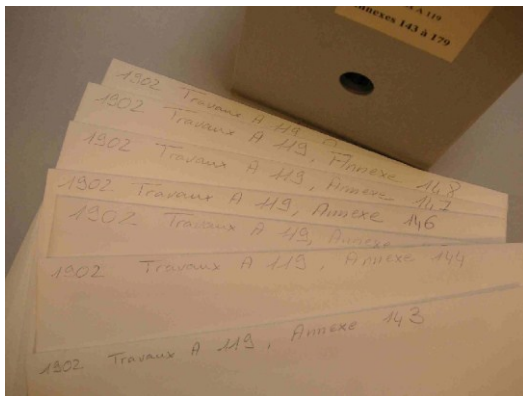 A 119
Annexes 143 à 179
1902 Travaux A 119,
1902 Travaux A 119, Annexe 148
1902 Travaux A 119, Annexe 147
1902 Travaux A 119, Annexe 146
1902 Travaux A 119, Annexe
1902 Travaux A 119, Annexe 144
1902 Travaux A 119, Annexe 143